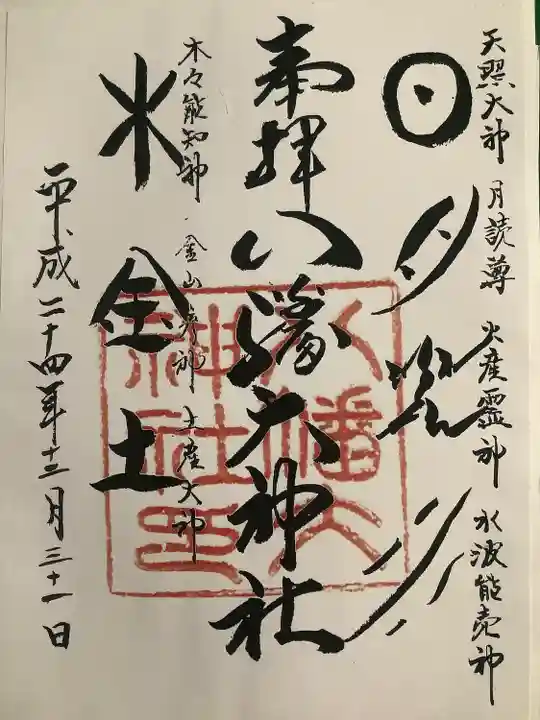 天照大神 月読尊 火産霊神 水波能売神
日月
奉拝 八幡大神社
木々能知神 金山彦神 土産大神
木金土
平成二十四年十二月三十一日
八幡大
神社印